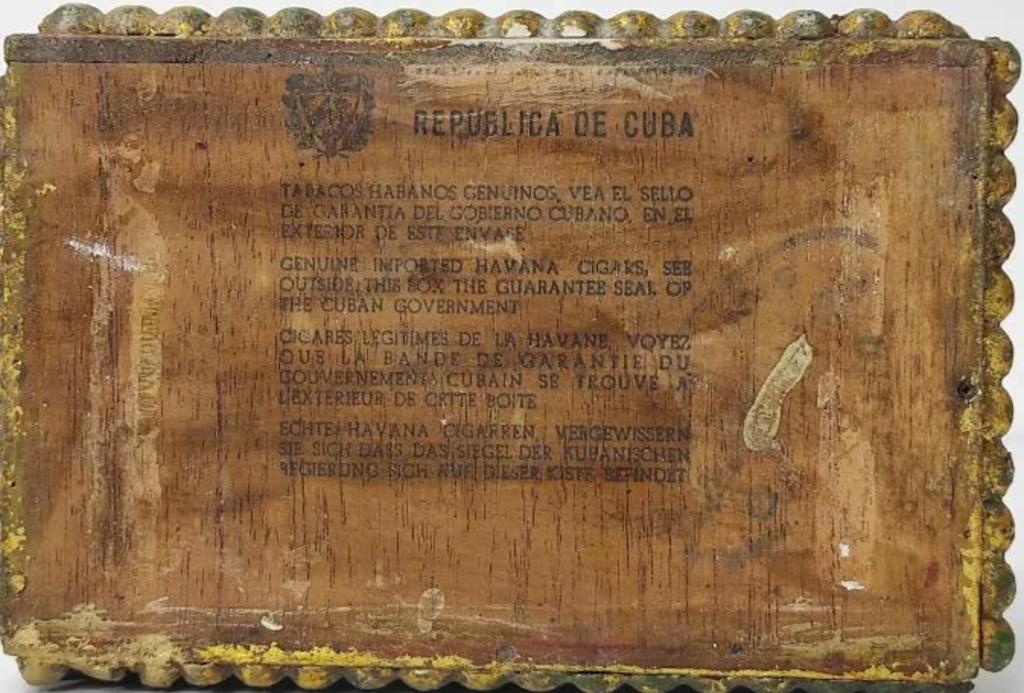 REPUBLICA DE CUBA
TABACOS HABANOS GENUINOS, VEA EL SELLO
DE GARANTIA DEL GOBIERNO CUBANO, EN EL
EXTERIOR DE ESTE ENVASE
GENUINE IMPORTED HAVANA CIGARS, SEE
OUTSIDE THIS BOX THE GUARANTEE SEAL OF
THE CUBAN GOVERNMENT
CIGARES LEGITIMES DE LA HAVANE, VOYEZ
QUE LA BANDE DE GARANTIE DU
GOUVERNEMENT CUBAIN SE TROUVE A
L'EXTERIEUR DE CETTE BOITE
ECHTE HAVANA CIGARREN, VERGEWISSERN
SIE SICH DASS DAS SIEGEL DER KUBANISCHEN
REGIERUNG SICH AUF DIESER KISTE BEFINDET